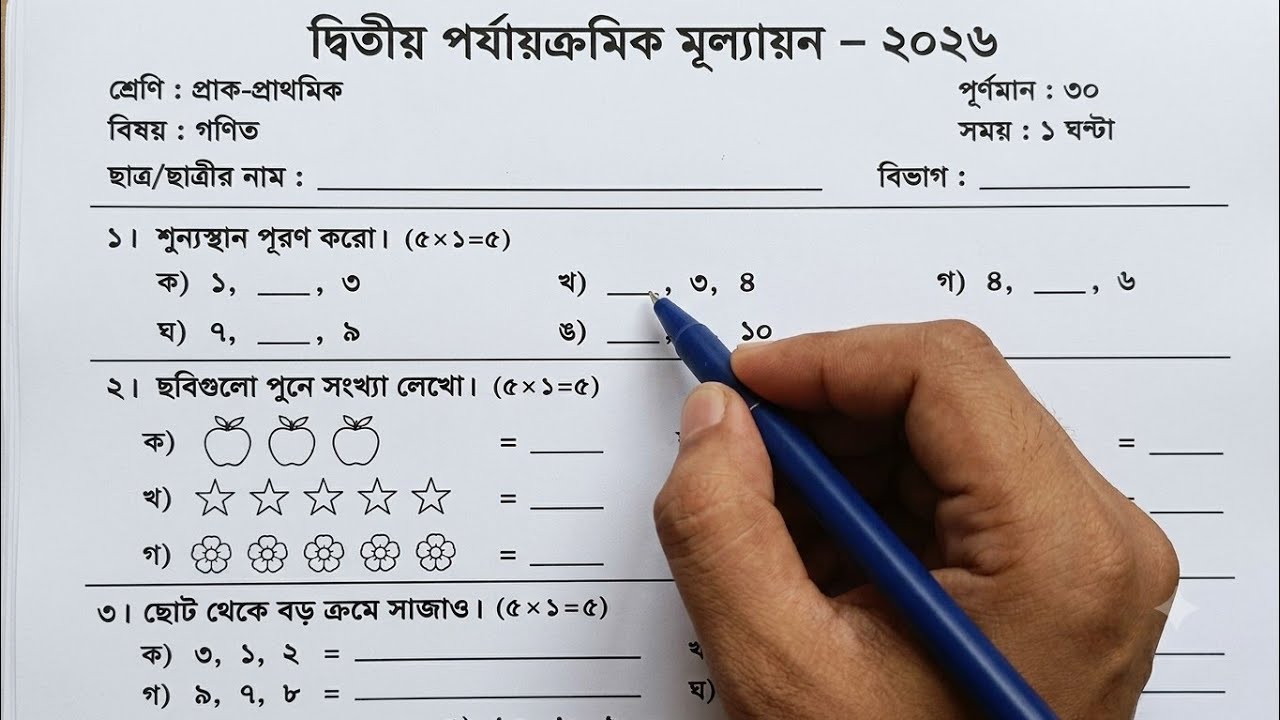 দ্বিতীয় পর্যায়ক্রমিক মূল্যায়ন – ২০২৬
শ্রেণি : প্রাক-প্রাথমিক পূর্ণমান : ৩০
বিষয় : গণিত সময় : ১ ঘন্টা
ছাত্র/ছাত্রীর নাম : ____________ বিভাগ : ____________
১। শুন্যস্থান পূরণ করো। (৫×১=৫)
ক) ১, ___, ৩ খ) ___, ৩, ৪ গ) ৪, ___, ৬
ঘ) ৭, ___, ৯ ঙ) ___, ১০
২। ছবিগুলো পুনে সংখ্যা লেখো। (৫×১=৫)
ক) = ____ = ____
খ) = ____
গ) = ____
৩। ছোট থেকে বড় ক্রমে সাজাও। (৫×১=৫)
ক) ৩, ১, ২ = ____________ খ
গ) ৯, ৭, ৮ = ____________ ঘ)